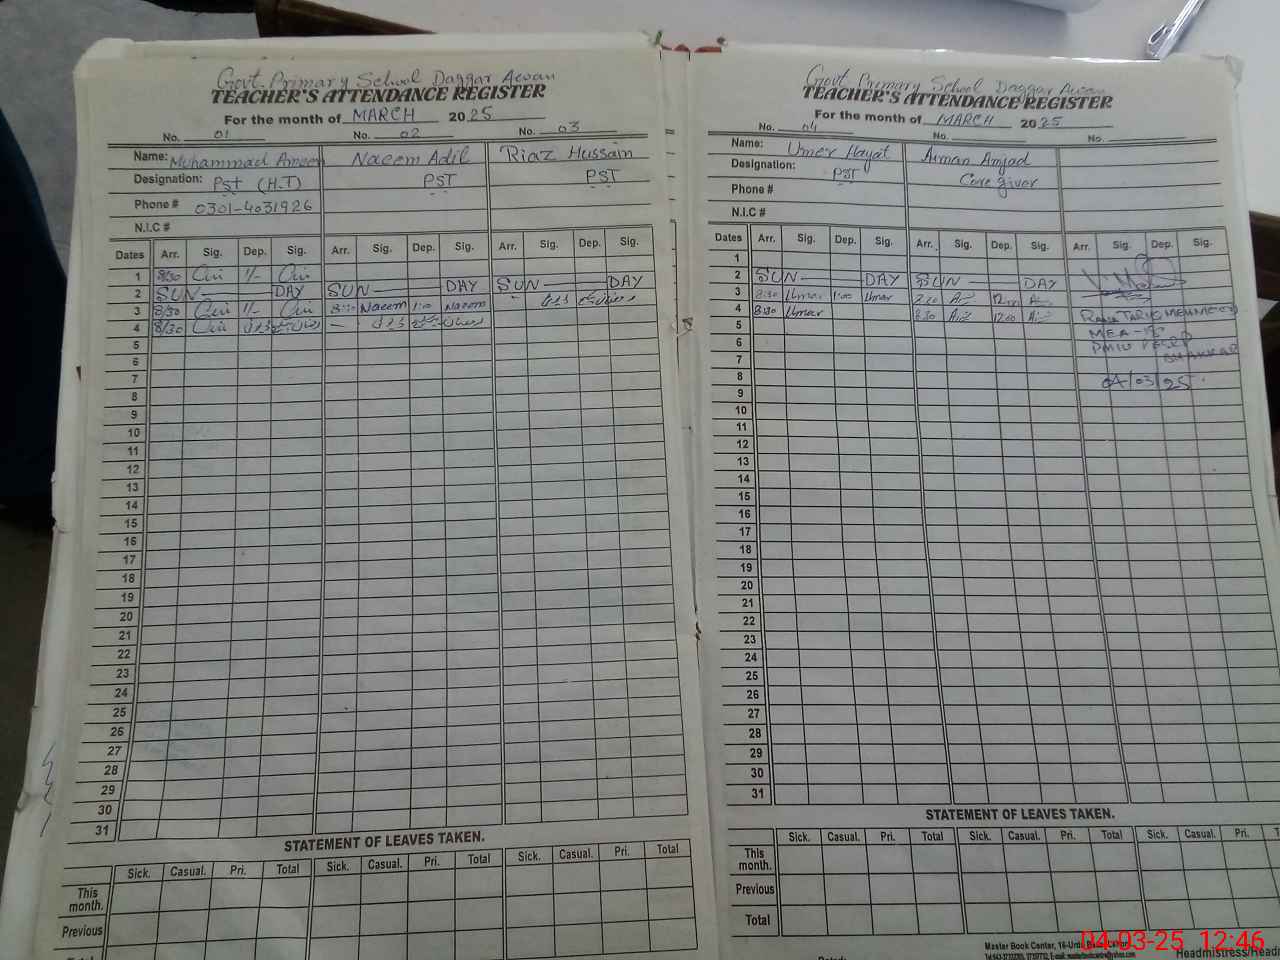 Govt. Primary School Daggar Awan
TEACHER'S ATTENDANCE REGISTER
For the month of MARCH 2025
No. 01 No. 02 No. 03
Name: Muhammad Ameen Naeem Adil Riaz Hussain
Designation: PST (H.T) PST PST
Phone # 0301-4031926
N.I.C #
Dates Arr. Sig. Dep. Sig. Arr. Sig. Dep. Sig. Arr. Sig. Dep. Sig.
1 8/30 1/-
2 SUN DAY SUN DAY SUN DAY
3 8/30 1/- Naeem 1:00 Naeem
4 8/30
5
6
7
8
9
10
11
12
13
14
15
16
17
18
19
20
21
22
23
24
25
26
27
28
29
30
31
STATEMENT OF LEAVES TAKEN.
Sick. Casual. Pri. Total Sick. Casual. Pri. Total Sick. Casual. Pri. Total
This month.
Previous
Total
Govt. Primary School Daggar Awan
TEACHER'S ATTENDANCE REGISTER
For the month of MARCH 2025
No. 04 No. No.
Name: Umer Hayat Arman Amjad
Designation: PST Care giver
Phone #
N.I.C #
Dates Arr. Sig. Dep. Sig. Arr. Sig. Dep. Sig. Arr. Sig. Dep. Sig.
1
2 SUN DAY SUN DAY
3 8:30 Umar 1:00 Umar
4 8:30 Umar 8:30 12:00
RANA TARIQ MEHMOOD
5
MEA-
6
PMIU PESRP
7
BHAKKAR
8
04/03/25.
9
10
11
12
13
14
15
16
17
18
19
20
21
22
23
24
25
26
27
28
29
30
31
STATEMENT OF LEAVES TAKEN.
Sick. Casual. Pri. Total Sick. Casual. Pri. Total Sick. Casual. Pri.
This month.
Previous
Total
Master Book Center, 16-Urdu
Headmistress/Head
04-03-25 12:46